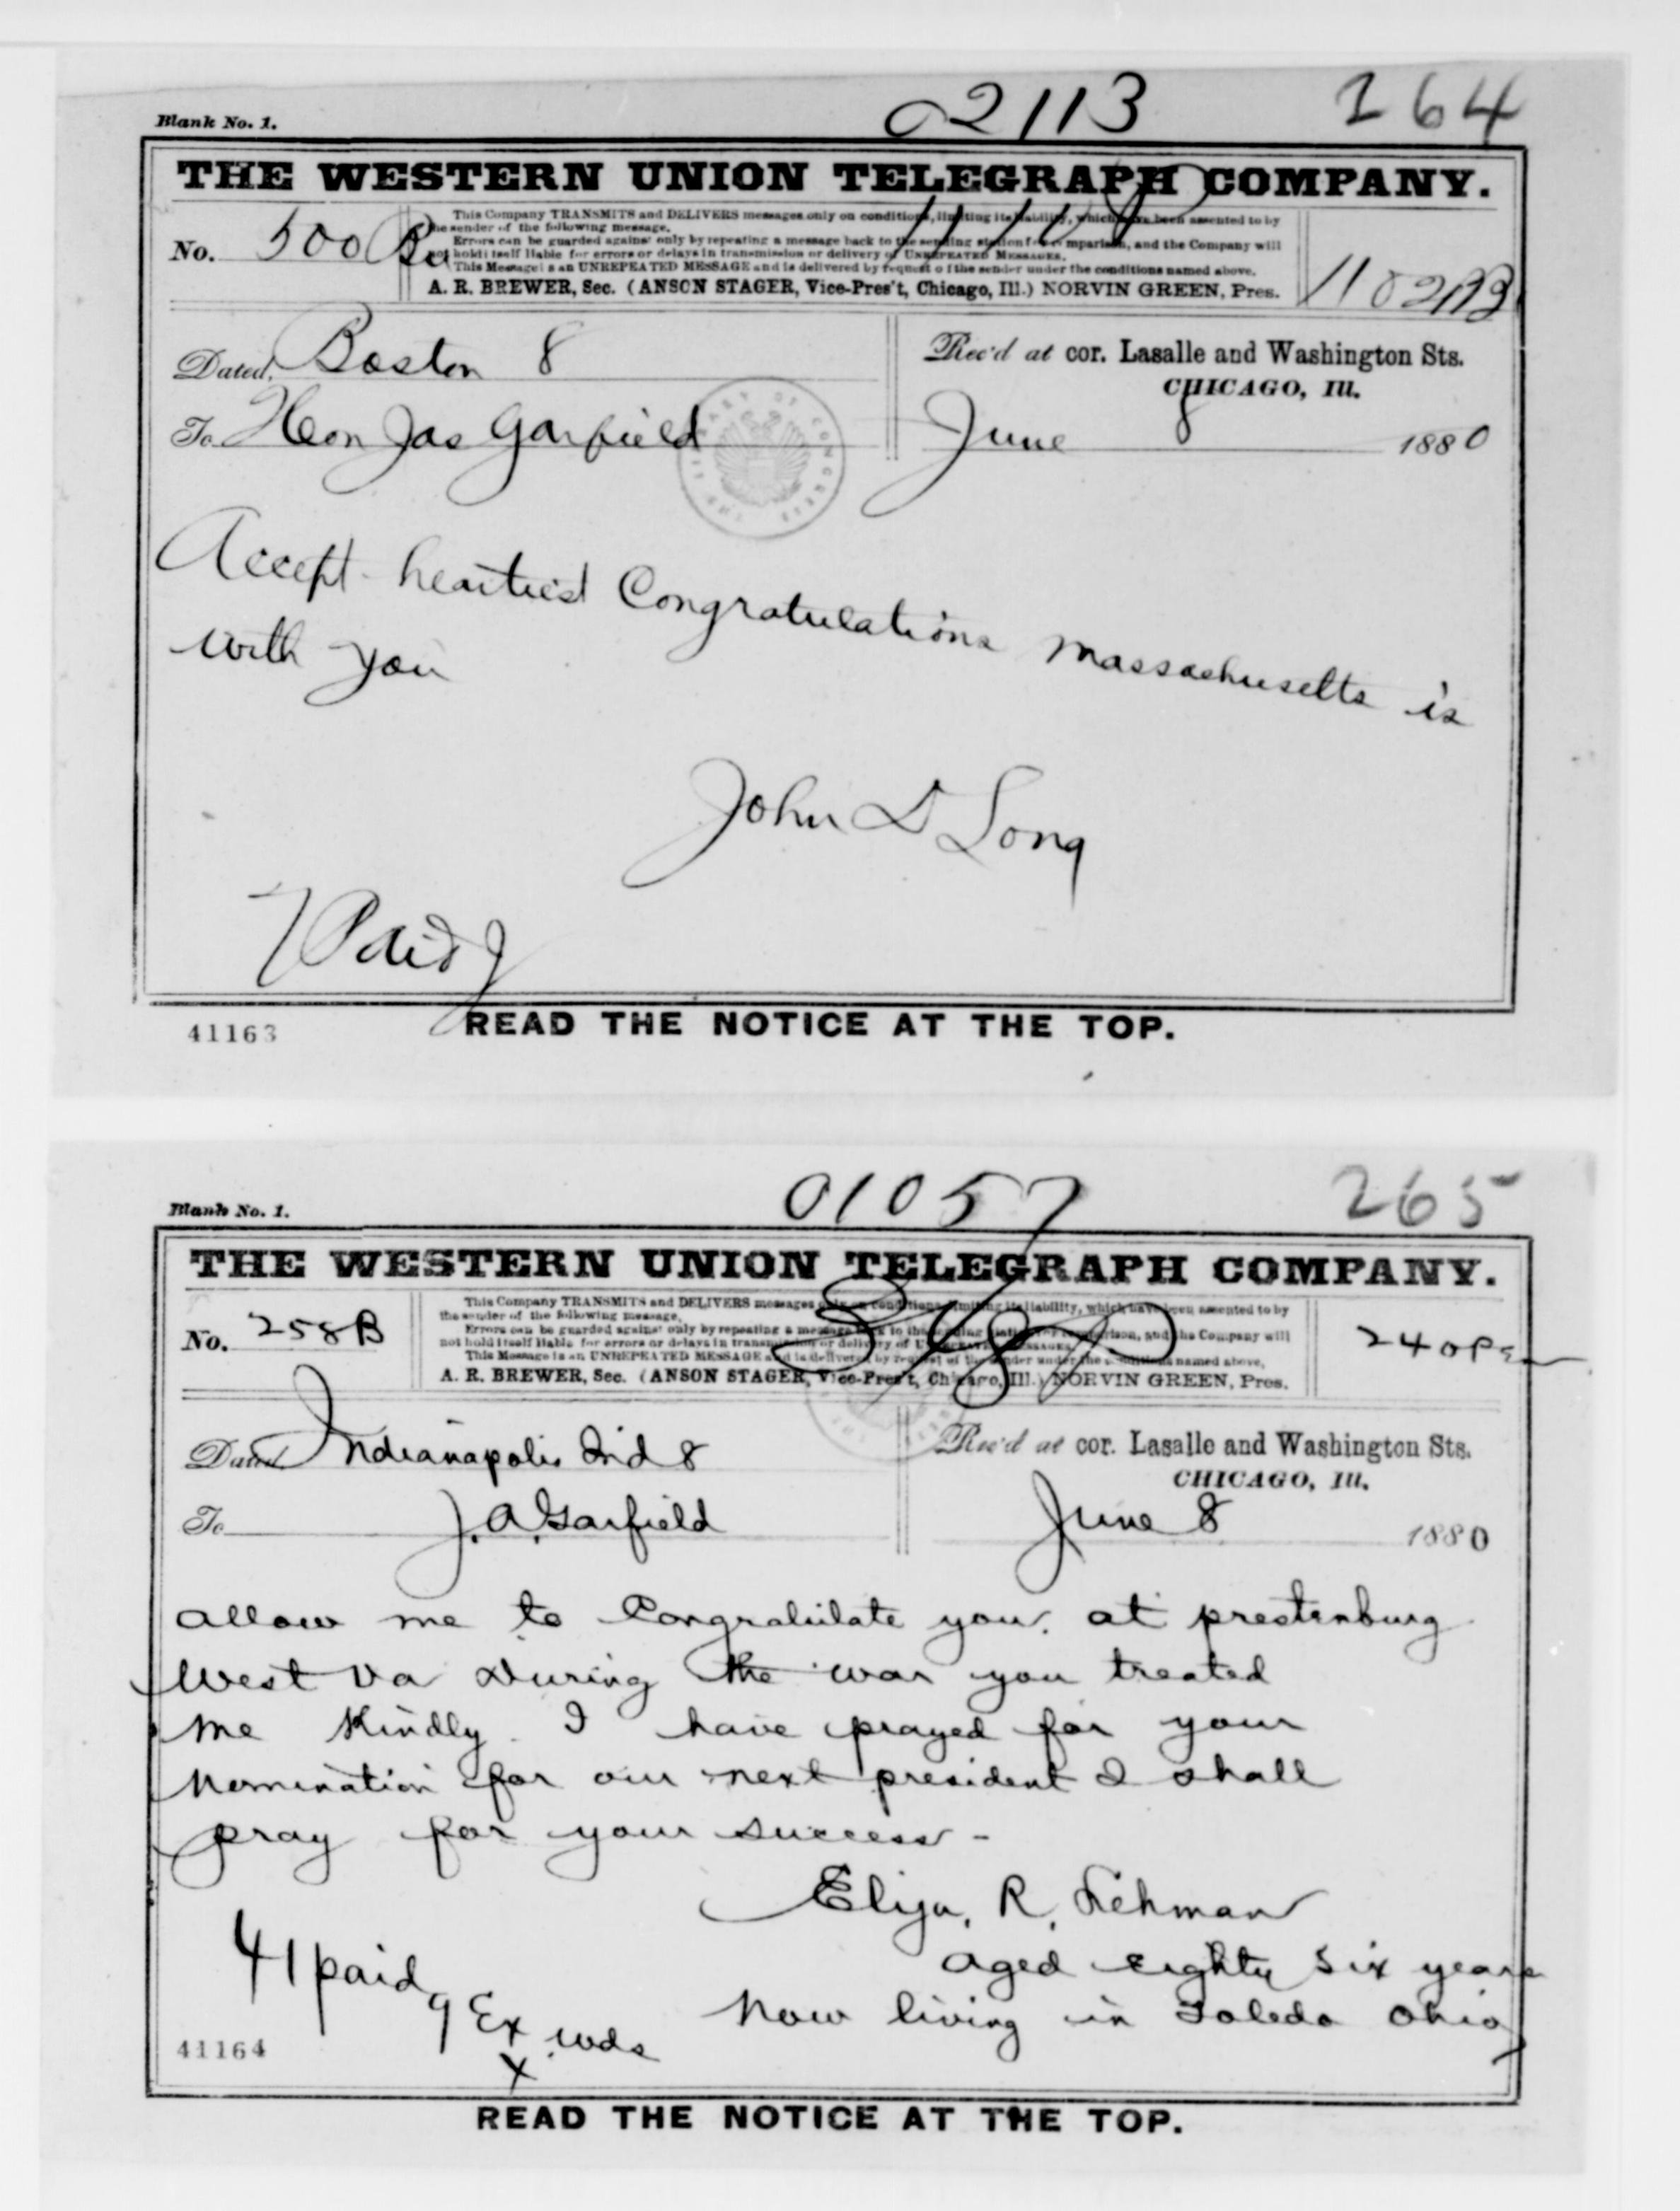 02113 264
Blank No. 1.
THE WESTERN UNION TELEGRAPH COMPANY.
No. 500
This Company TRANSMITS and DELIVERS messages only on conditions, limiting its liability, which have been assented to by
the sender of the following message.
Errors can be guarded against only by repeating a message back to the sending station for comparison, and the Company will
not hold itself liable for errors or delays in transmission or delivery of UNREPEATED MESSAGES.
This Message is an UNREPEATED MESSAGE and is delivered by request of the sender under the conditions named above.
A. R. BREWER, Sec. (ANSON STAGER, Vice-Pres't, Chicago, Ill.) NORVIN GREEN, Pres.
Dated, Boston 8
Rec'd at cor. Lasalle and Washington Sts.
CHICAGO, Ill.
To Hon Jas Garfield
June 8 1880
Accept heartiest Congratulations Massachusetts is
with you
John D Long
7 Paid
41163
READ THE NOTICE AT THE TOP.
01057 265
Blank No. 1.
THE WESTERN UNION TELEGRAPH COMPANY.
No. 258B
This Company TRANSMITS and DELIVERS messages only on conditions, limiting its liability, which have been assented to by
the sender of the following message.
Errors can be guarded against only by repeating a message back to the sending station for comparison, and the Company will
not hold itself liable for errors or delays in transmission or delivery of UNREPEATED MESSAGES.
This Message is an UNREPEATED MESSAGE and is delivered by request of the sender under the conditions named above.
A. R. BREWER, Sec. (ANSON STAGER, Vice-Pres't, Chicago, Ill.) NORVIN GREEN, Pres.
240
Dated Indianapolis Ind 8
Rec'd at cor. Lasalle and Washington Sts.
CHICAGO, Ill.
To J. A. Garfield
June 8 1880
allow me to Congratulate you. at prestenburg
West Va During the war you treated
me Kindly. I have prayed for your
Nomination for our next president I shall
pray for your success -
Elija. R. Lehman
aged eighty six years
now living in Toledo Ohio
41 paid 9 Ex wds
X
41164
READ THE NOTICE AT THE TOP.